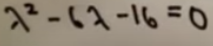 λ² - 6λ - 16 = 0